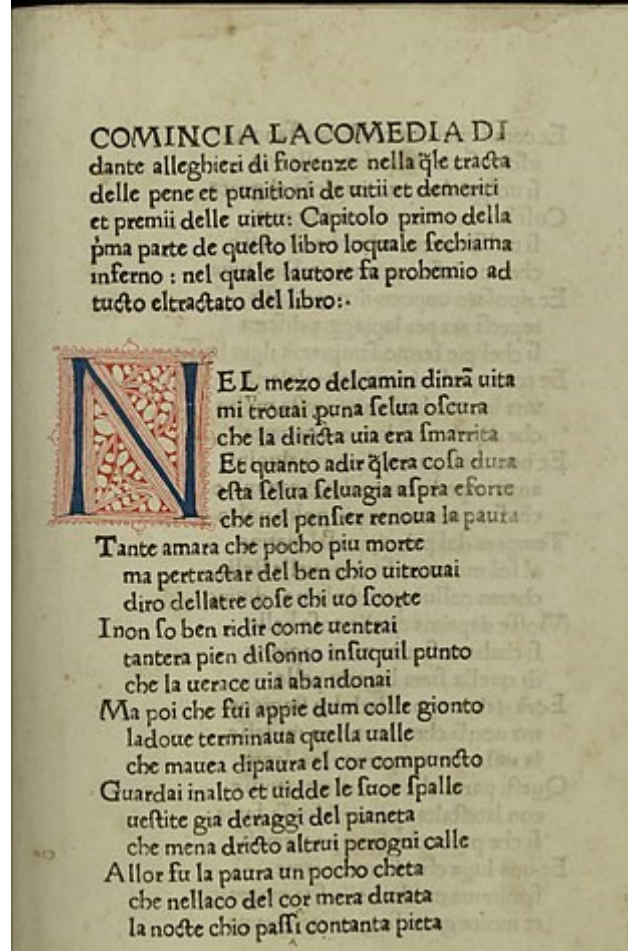 COMINCIA LA COMEDIA DI
dante alleghieri di fiorenze nella q̄le tracta
delle pene et punitioni de uitii et demeriti
et premii delle uirtu: Capitolo primo della
p̄ma parte de queſto libro loquale ſechiama
inferno : nel quale lautore fa prohemio ad
tucto eltractato del libro:·
NEL mezo delcamin dinr̄a uita
mi trouai ꝑuna ſelua oſcura
che la diricta uia era ſmarrita
Et quanto adir q̄lera coſa dura
eſta ſelua ſeluagia aſpra eforte
che nel penſier renoua la paura
Tante amara che pocho piu morte
ma pertractar del ben chio uitrouai
diro dellatre coſe chi uo ſcorte
Inon ſo ben ridir come uentrai
tantera pien diſonno inſuquil punto
che la uerace uia abandonai
Ma poi che fui appie dum colle gionto
ladoue terminaua quella ualle
che mauea dipaura el cor compuncto
Guardai inalto et uidde le ſuoe ſpalle
ueſtite gia deraggi del pianeta
che mena dricto altrui perogni calle
Allor fu la paura un pocho cheta
che nellaco del cor mera durata
la nocte chio paſſi contanta pieta